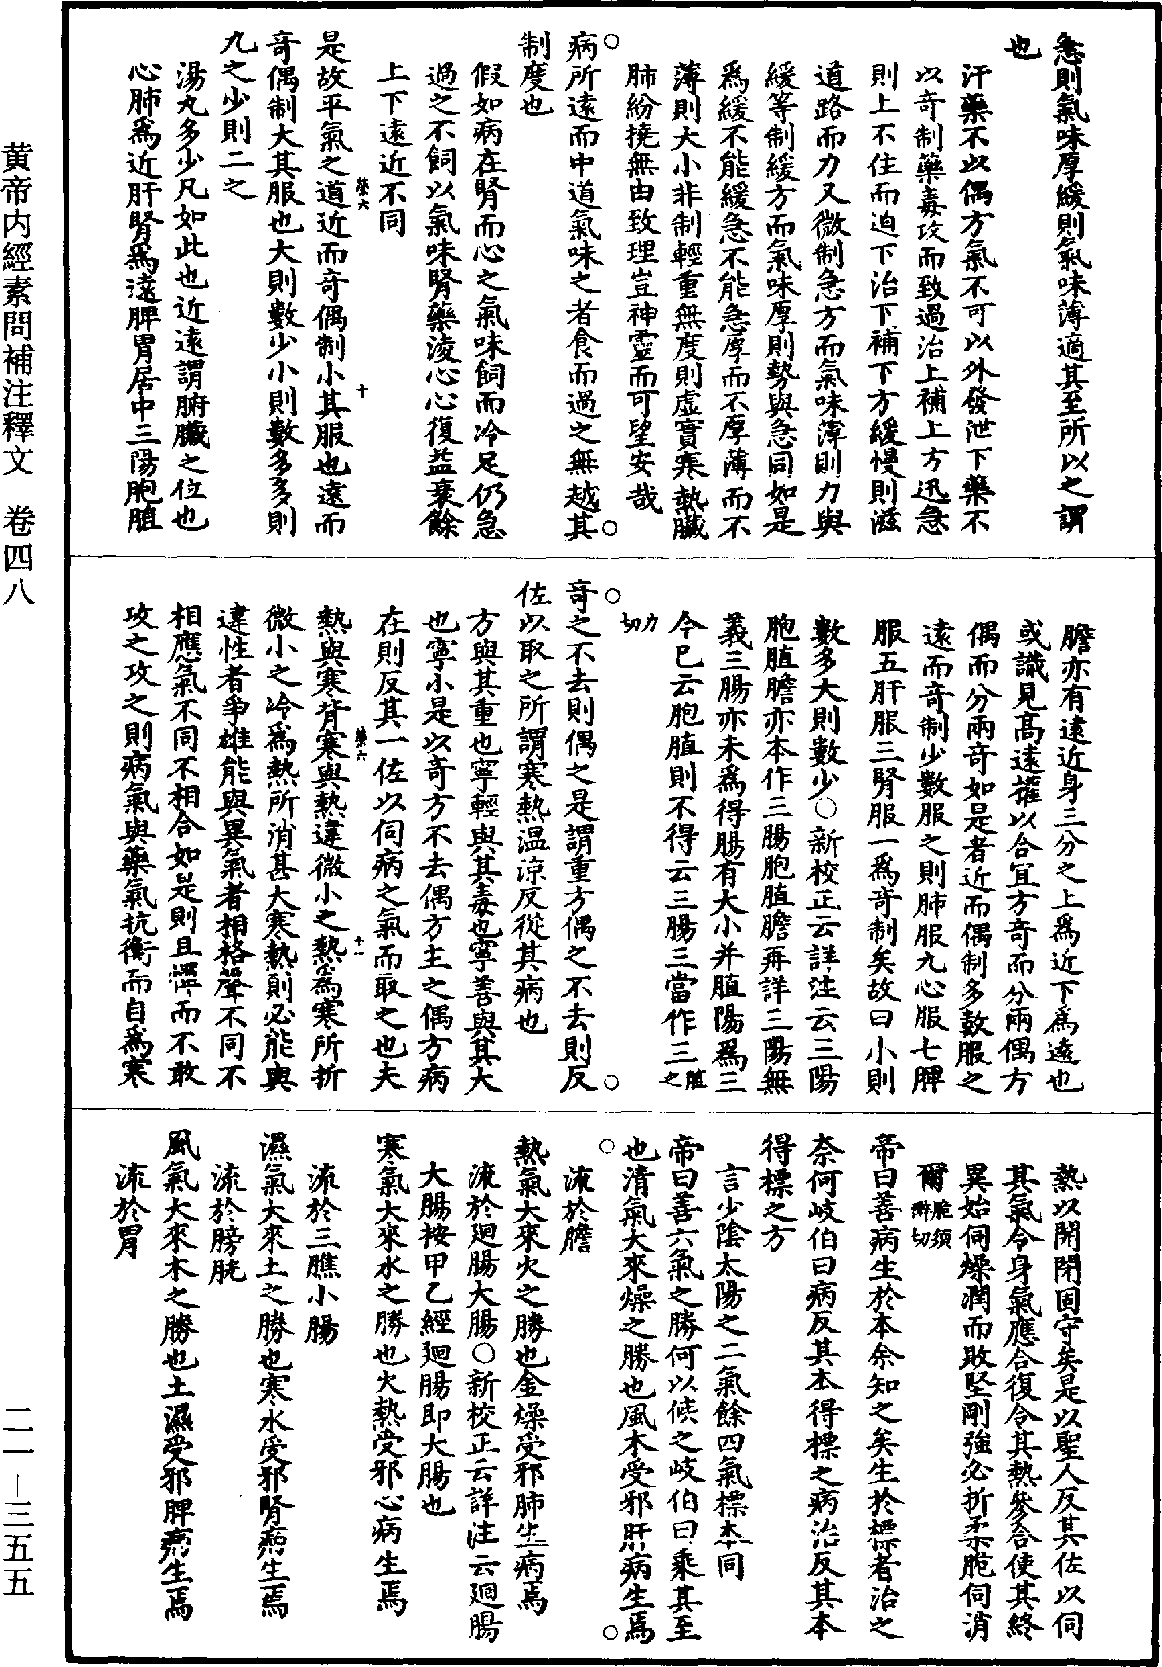 急則氣味厚緩則氣味薄適其至所以之謂
也
汗藥不以偶方氣不可以外發泄下藥不
以奇制藥毒攻而致過治上補上方迅急
則上不住而迫下治下補下方緩慢則滋
道路而力又微制急方而氣味薄則力與
緩等制緩方而氣味厚則勢與急同如是
爲緩不能緩急不能急厚而不厚薄而不
薄則大小非制輕重無度則虛實寒熱臟
肺紛撓無由致理豈神靈而可望安哉
○病所遠而中道氣味之者食而過之無越其○
制度也
假如病在腎而心之氣味飼而冷足仍急
過之不飼以氣味腎藥淩心心復益衰餘
上下遠近不同
是故平氣之道近而奇偶制小其服也遠而
藥六
十
奇偶制大其服也大則數少小則數多多則
九之少則二之
湯丸多少凡如此也近遠謂腑臟之位也
心肺爲近肝腎爲遠脾胃居中三陽胞䐈
膽亦有遠近身三分之上爲近下爲遠也
或識見高遠權以合宜方奇而分兩偶方
偶而分兩奇如是者近而偶制多數服之
遠而奇制少數服之則肺服九心服七脾
服五肝服三腎服一爲奇制矣故曰小則
數多大則數少○新校正云詳注云三陽
胞䐈膽亦本作三腸胞䐈膽再詳三陽無
義三腸亦未爲得腸有大小并䐈陽爲三
今已云胞䐈則不得云三腸三當作三䐈之
力切
○奇之不去則偶之是謂重方偶之不去則反○
佐以取之所謂寒熱温凉反從其病也
方與其重也寧輕與其毒也寧善與其大
也寧小是以奇方不去偶方主之偶方病
在則反其一佐以伺病之氣而取之也夫
熱與寒背寒與熱違微小之熱爲寒所折
藥六
十一
微小之冷爲熱所消甚大寒熱則必能與
違性者爭雄能與異氣者相格聲不同不
相應氣不同不相合如是則且憚而不敢
攻之攻之則病氣與藥氣抗衡而自爲寒
熱以開閉固守矣是以聖人反其佐以伺
其氣令身氣應合復令其熱參合使其終
異始伺燥潤而敗堅剛強必折柔脆伺消
爾 脆須醉切
帝曰善病生於本余知之矣生於標者治之
奈何岐伯曰病反其本得標之病治反其本
得標之方
言少陰太陽之二氣餘四氣標本同
帝曰善六氣之勝何以候之岐伯曰乘其至
○也清氣大來燥之勝也風木受邪肝病生焉○
流於膽
熱氣大來火之勝也金燥受邪肺生病焉
流於廻腸大腸○新校正云詳注云廻腸
大腸按甲乙經廻腸即大腸也
寒氣大來水之勝也火熱受邪心病生焉
流於三膲小腸
濕氣大來土之勝也寒水受邪腎病生焉
流於膀胱
風氣大來木之勝也土濕受邪脾病生焉
流於胃
黄帝内經素問補注釋文 卷四八
二一—三五五